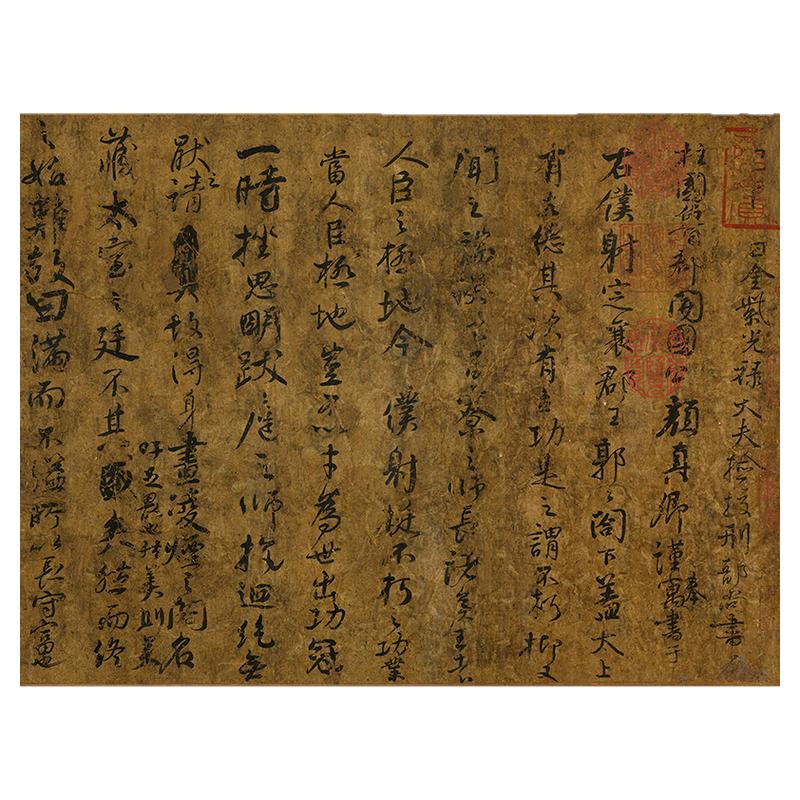 月日金紫光祿大夫檢校刑部尚書
柱國魯郡開國公顏真卿謹奉寓書于
右僕射定襄郡王郭公閤下蓋太上
有立德其次有立功是之謂不朽抑又
聞之端揆者百寮之師長諸侯王者
人臣之極地今僕射挺不朽之功業
當人臣極地豈不以才為世出功冠
一時挫思明跋扈之師抗迴紇無
厭之請故得身畫凌煙之閣名
藏太室之廷 美則美
矣然而終
之始難故曰滿而不溢所以長守富